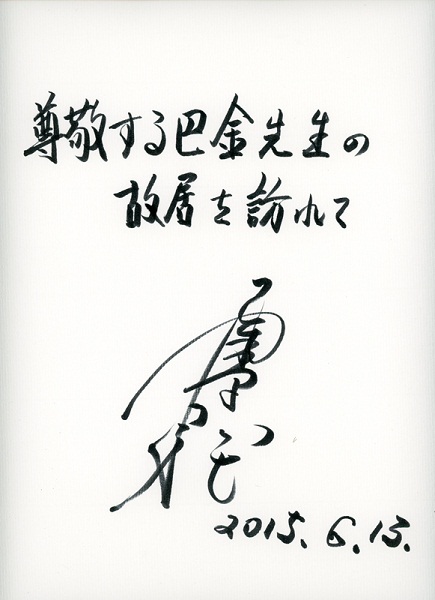 尊敬する巴金先生の
故居を訪れて
2015.6.13.